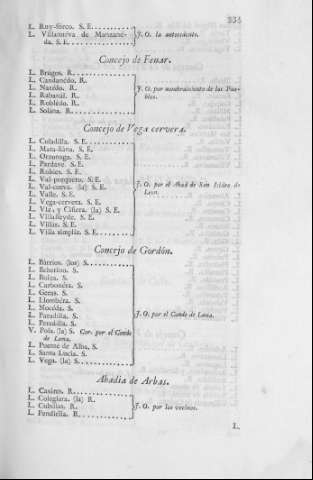 L. Ruy-forco. S. E.
L. Villanueva de Manzane-
da. S. E.
J. O. la antecedente.
Concejo de Fenar.
L. Brugos. R.
L. Candanedo. R.
L. Naredo. R.
L. Rabanál. R.
L. Robledo. R.
L. Solana. R.
J. O. por nombramiento de los Pue-
blos.
Concejo de Vega cervera.
L. Coladilla. S. E.
L. Mata-
L. Orzonaga. S. E.
L. Pardavé. S. E.
L. Robles. S. E.
L. Val-porquero. S. E.
L. Val-cueva. (la) S. E.
L. Valle. S. E.
L. Vega-cervera. S. E.
L. y Ciñera. (la) S. E.
L. Villalfeyde. S. E.
L. Villar. S. E.
L. Villa simpliz. S. E.
J. O. por el Abad de San Isidro de
Leon.
Concejo de Gordón.
L. Bárrios. (los) S.
L. Beberino. S.
L. Buiza. S.
L. Carbonéra. S.
L. Geras. S.
L. Llombéra. S.
L. Nocéda. S.
L. Paradilla. S.
L. Peredilla. S.
V. Pola. (la) S. Cor. por el Conde
de Luna.
L. Puente de Alba. S.
L. Santa Lucía. S.
L. Vega. (la) S.
J. O. por el Conde de Luna.
Abadía de Arbas.
L. Casares. R.
L. Colegiata. (la) R.
L. Cubillas. R.
L. Pendilla. R.
J. O. por los vecinos.
L.